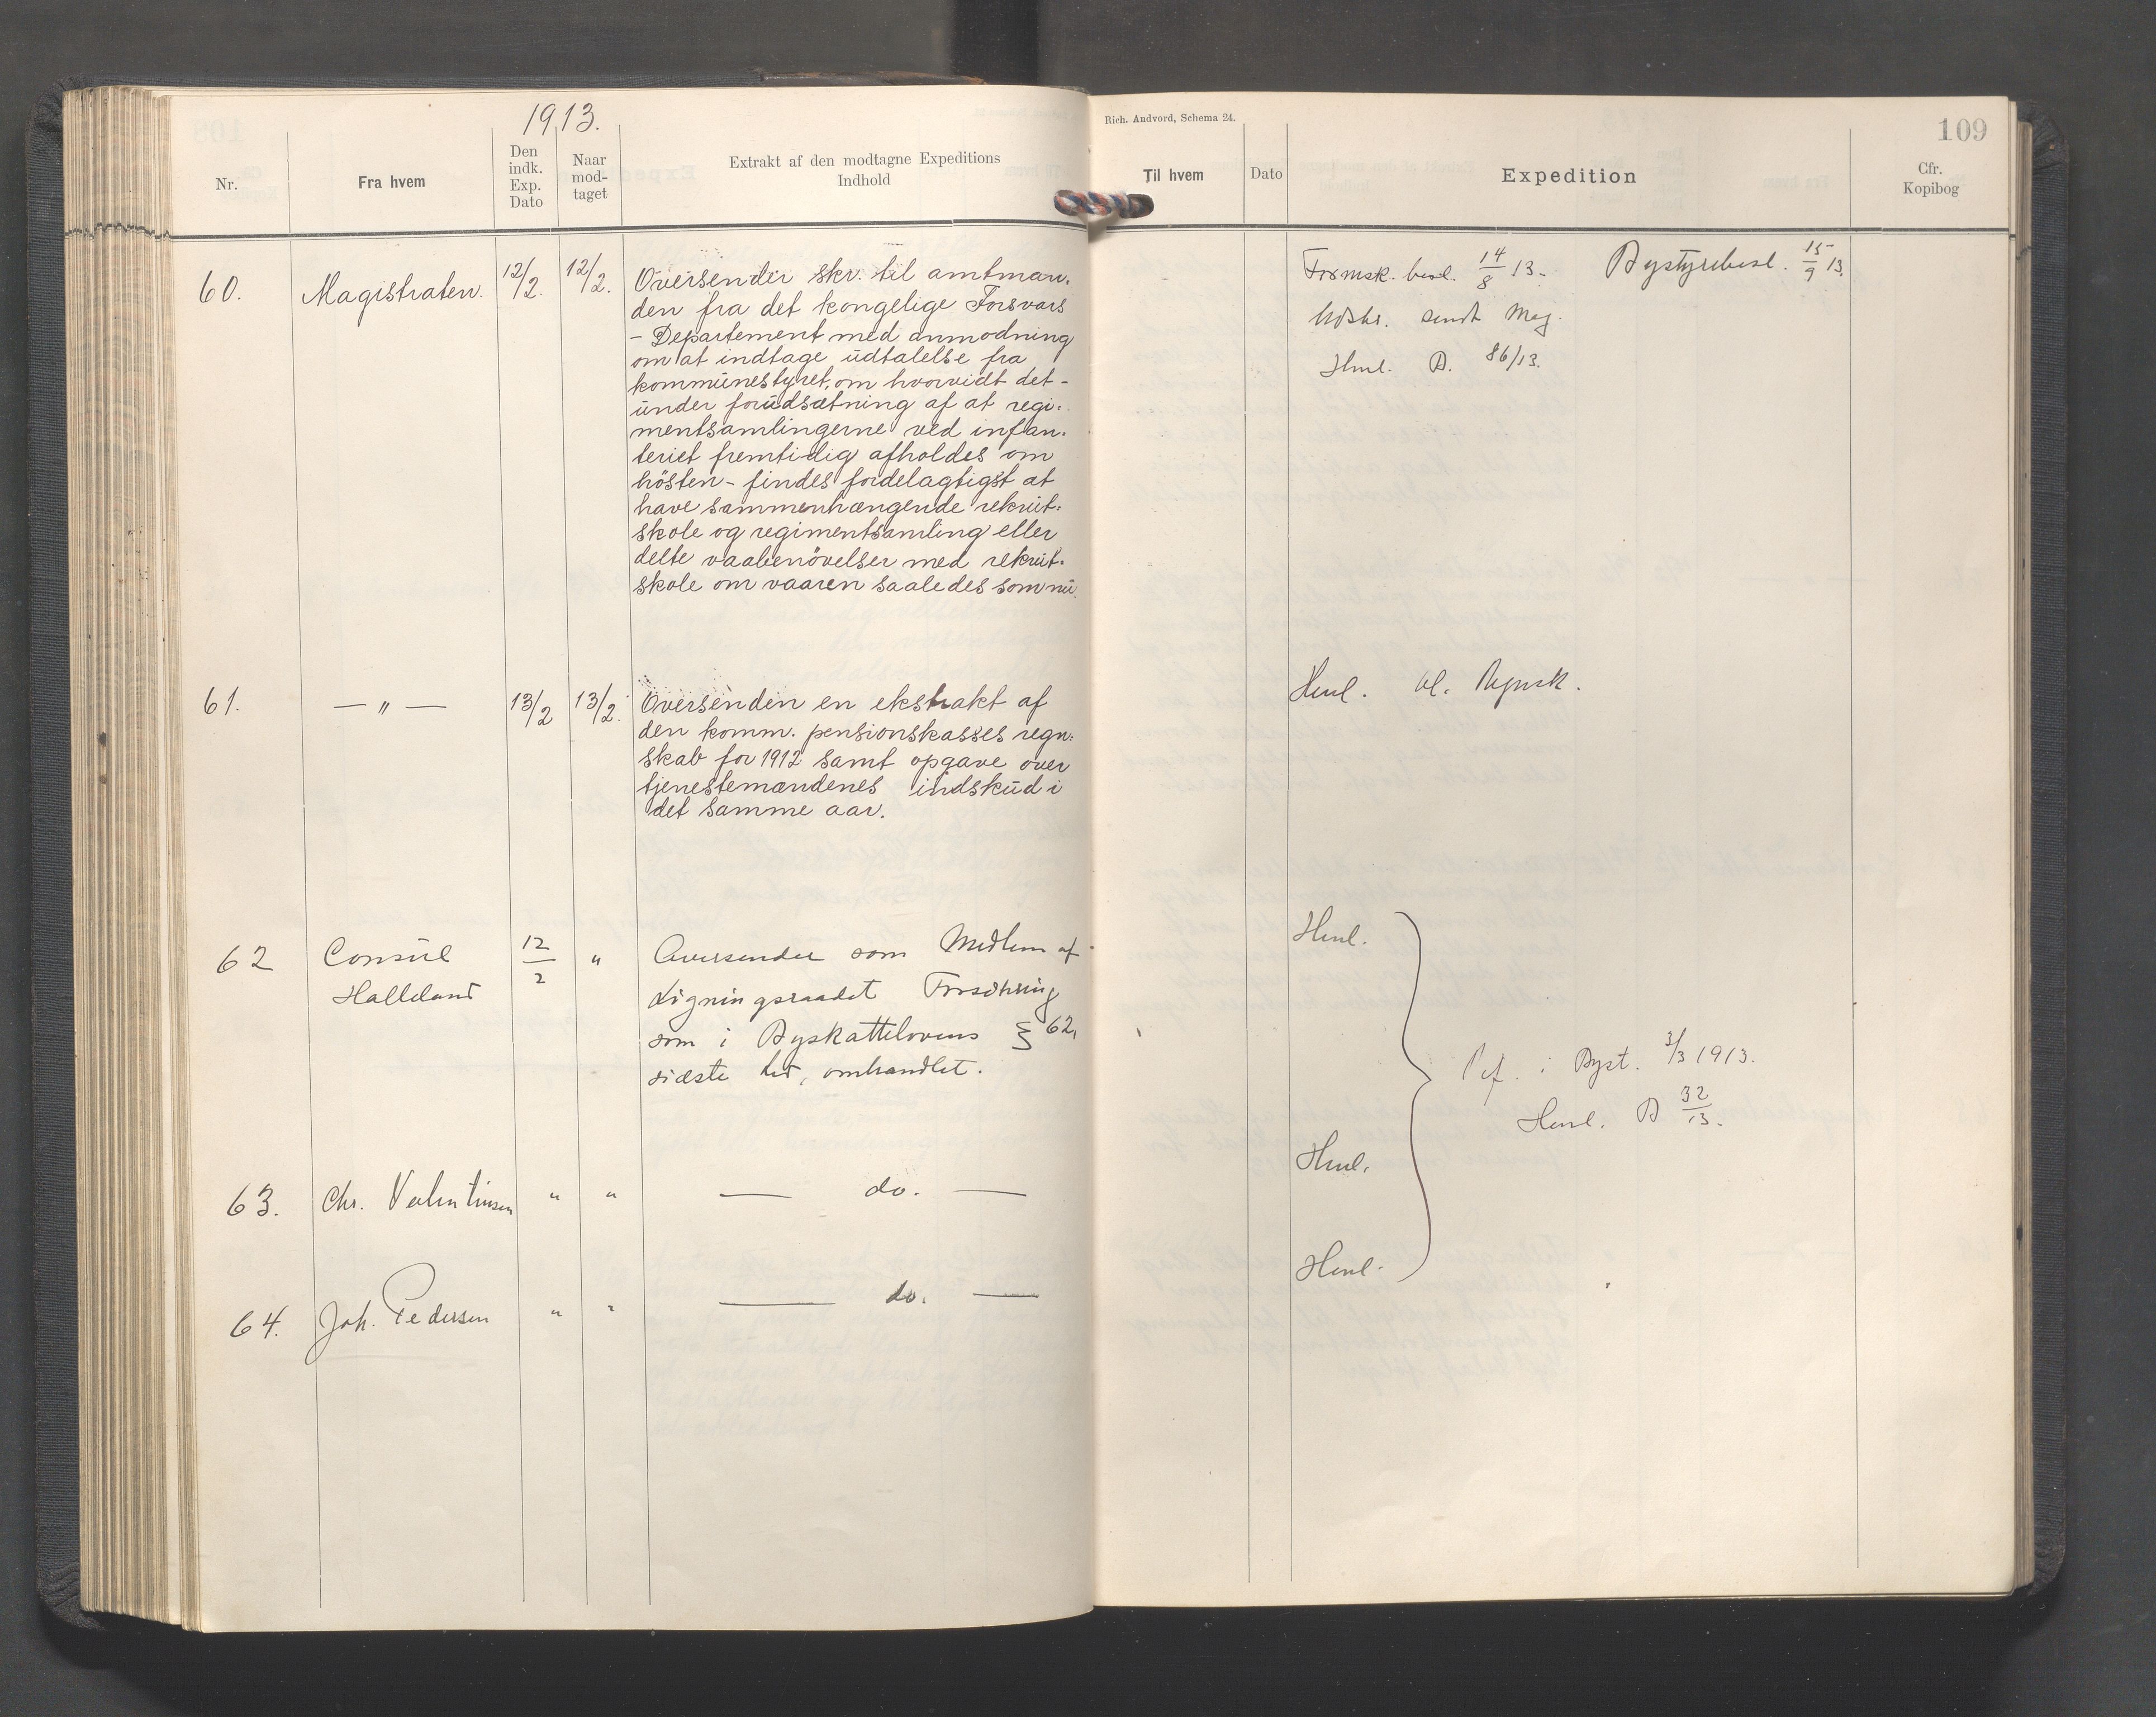 1913.
Nr.
Fra hvem
Den
indk.
Exp.
Dato
Naar
mod-
taget
Extrakt af den modtagne Expeditions
Indhold
60.
Magistraten.
12/2.
12/2.
Oversender skr. til amtman-
den fra det kongelige Forsvars
- Departement med anmodning
om at indtage udtalelse fra
kommunestyret, om hvorvidt det -
under forudsætning af at regi-
mentsamlingerne ved infan-
teriet fremtidig afholdes om
hösten - findes fordelagtigst at
have sammenhængende rekrut-
skole og regimentsamling eller
delte vaabenövelser med rekrut-
skole om vaaren saaledes som nu.
61.
— " —
13/2
13/2.
Oversenden en ekstrakt af
den komm. pensionskasses regn-
skab for 1912 samt opgave over
tjenestemændenes indskud i
det samme aar.
62
Consul
Halleland
12/2
"
Oversender som Medlem af
Ligningsraadet Forsikring
som i Byskattelovens § 62,
sidste led, omhandlet.
63.
Chr. Valentinsen
"
"
— do. —
64.
Joh. Pedersen
"
"
— do. —
Rich. Andvord, Schema 24.
109
Til hvem
Dato
Expedition
Cfr.
Kopibog
Formsk. besl. 14/8 13. Bystyrebesl. 15/9 13.
Udskr. sendt Mag.
Henl. B. 86/13.
Henl. bl. Regnsk.
Henl.
Ref. i Byst. 3/3 1913.
Henl. B 32/13.
Henl.
Henl.